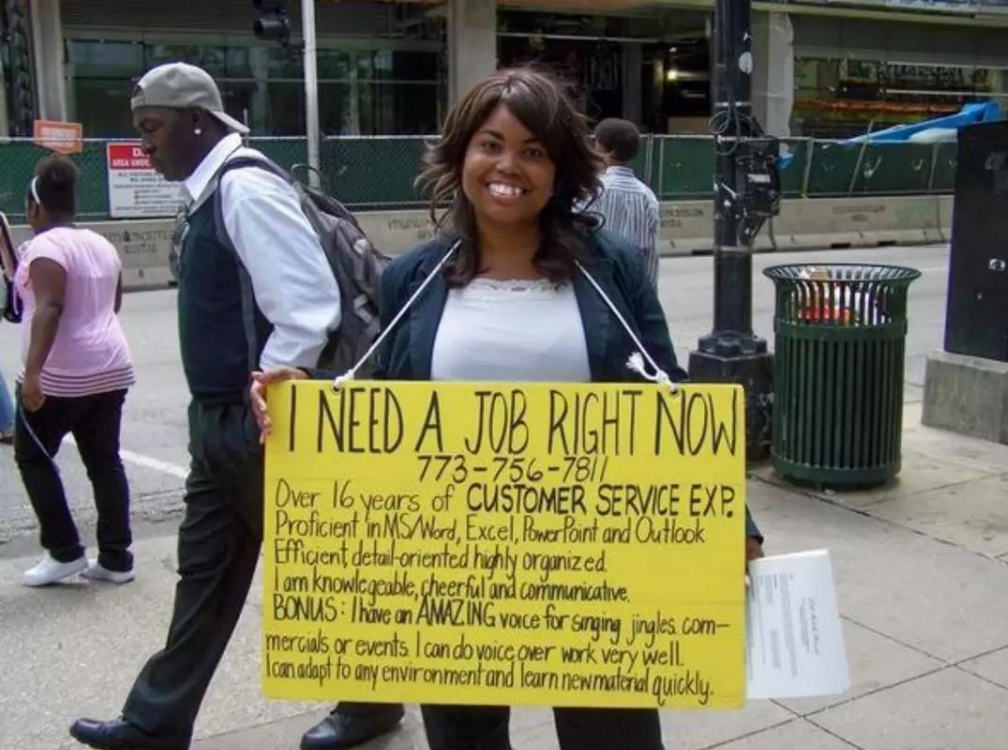 I NEED A JOB RIGHT NOW
773-756-7811
Over 16 years of CUSTOMER SERVICE EXP.
Proficient in MS/Word, Excel, PowerPoint and Outlook
Efficient, detail-oriented highly organized.
I am knowlegeable, cheerful and communicative.
BONUS: I have an AMAZING voice for singing jingles. com-
mercials or events. I can do voice over work very well.
I can adapt to any environment and learn new material quickly.